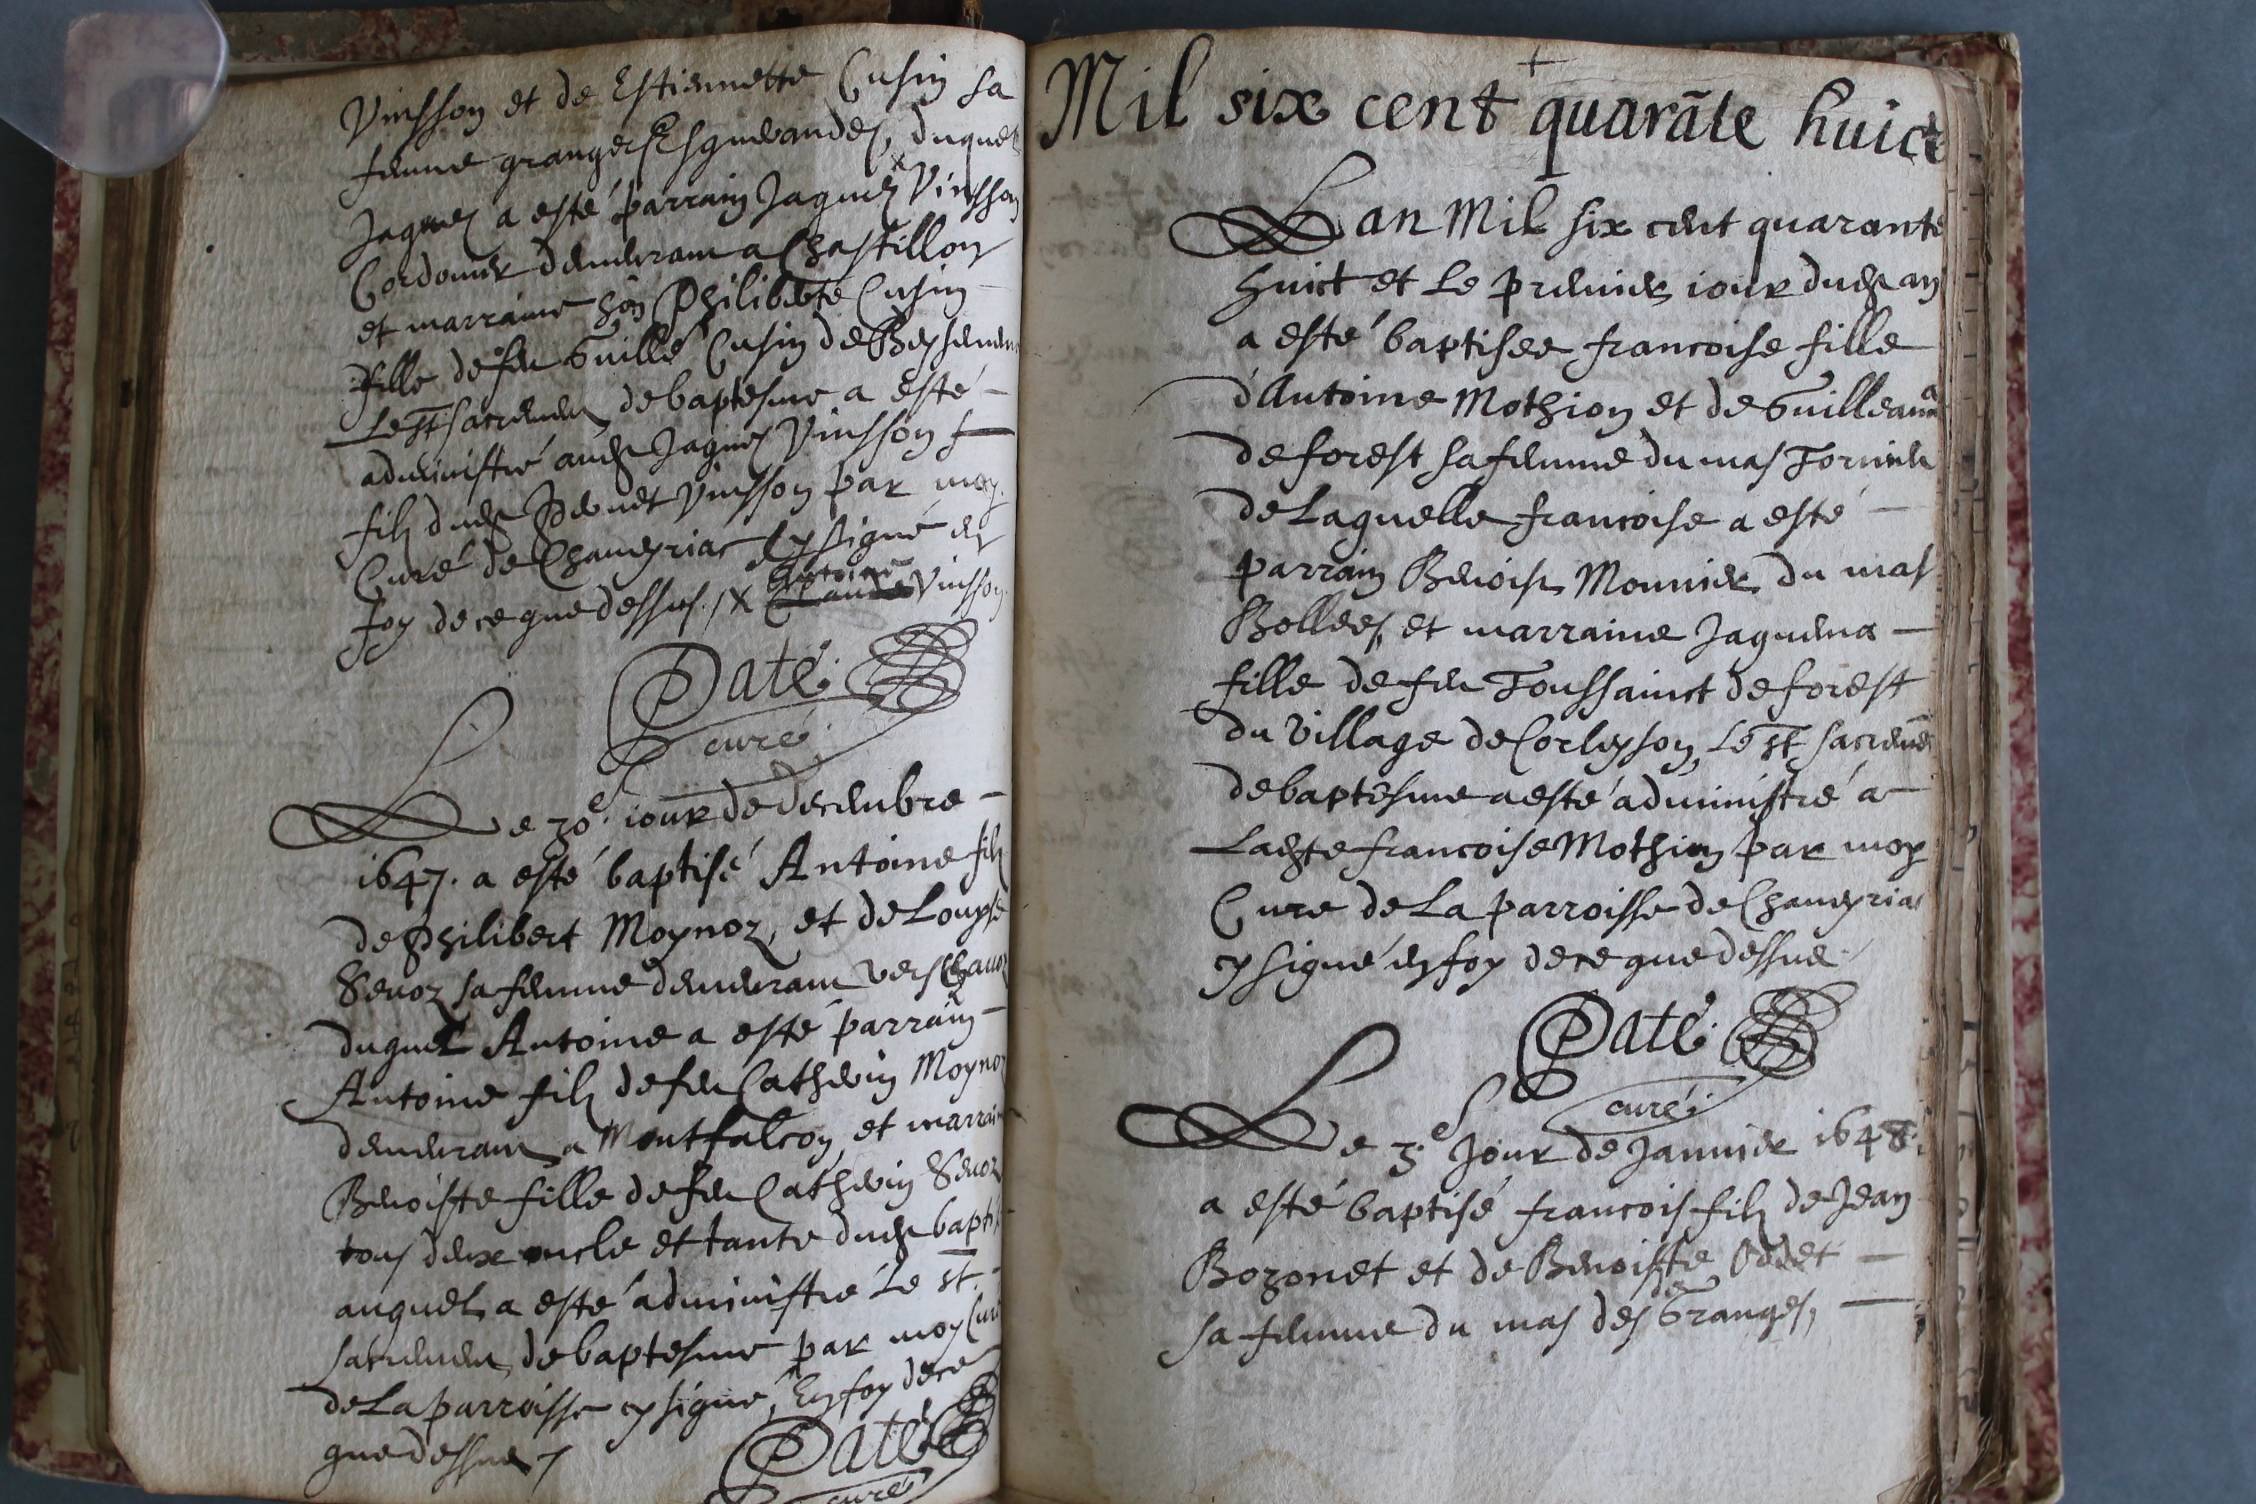 Vinsson et de Estiennette Cusin sa
femme grangers Esguerandes, duquel
Jaques a esté parrain Jaques x Vinsson
Cordonier demeurant a Chastillon
et marraine hon Philiberte Cusin
fille de feu Guillé Cusin de
Le st sacrement de baptesme a esté
administré audt Jaques Vinsson
filz dudt Benoet Vinsson par moy
Curé de Chaveyriac cy signé en
foy de ce que dessus. / x Antoine Vinsson
Paté.
curé.
Le 30e. iour de decembre
1647. a esté baptisé Antoine filz
de Philibert Moynoz, et de Louyse
Sevoz sa femme demeurant vers
duquel Antoine a esté parrain
Antoine filz de feu Catherin Moynoz
demeurant a Montfalcon, et marraine
Benoiste fille de feu Catherin Sevoz
tous deux oncle et tante dudt baptisé
auquel a esté administré Le st.
sacrement de baptesme par moy Curé
de La parroisse cy signé, En foy de ce
que dessus
Paté
curé
Mil six cent quarãte huict
Lan Mil six cent quarante
huict et Le premier iour dudt an
a esté baptisee francoise fille
d'Antoine Mothion et de Guilleauma
de forest sa femme du mas
de Laquelle francoise a esté
parrain Benoist Monnier du mas
Bollees, et marraine Jaquema
fille de feu Toussainct de forest
du Village de Corleyson, Le st sacremẽt
de baptesme a esté administré a
Ladte francoise Mothion par moy
Curé de La parroisse de Chaveyriac
cy signé en foy de ce que dessus
Paté.
curé.
Le 3e. Jour de Januier 1648.
a esté baptisé francois filz de Jean
Bozonet et de Benoiste Oddet
sa femme du mas des Granges,